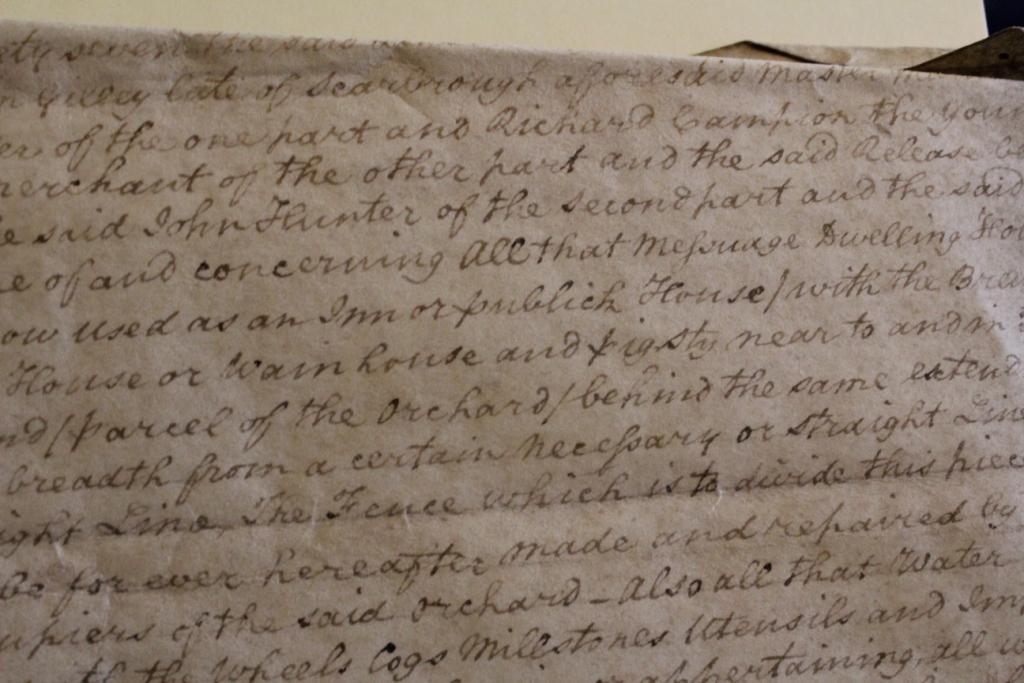 ety seven the said
n Gilley late of Scarbrough aforesaid Master
er of the one part and Richard Campion the youn
erchant of the other part and the said Release
e said John Hunter of the second part and the said
e of and concerning All that Meſsuage Dwelling Hou
ow used as an Inn or publick House/ with the Brew
House or Wainhouse and pigsty near to and in
nd/parcel of the Orchard/behind the same extend
breadth from a certain Neceſsary or straight Line
ight Line, The Fence which is to divide this piec
be for ever hereafter made and repaired by
upiers of the said Orchard - Also all that Water
th the Wheels Cogs Millstones Utensils and Imp
appertaining, all